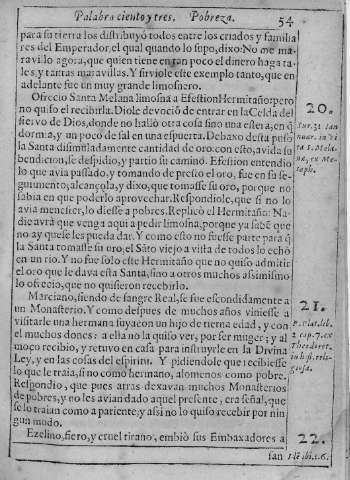 Palabra ciento y tres. Pobreza. 54
para su tierra los distribuyó todos entre los criados y familia
res del Emperador, el qual quando lo supo, dixo: No me ma-
ravillo agora, que quien tiene en tan poco el dinero haga ta-
les, y tantas maravillas. Y sirvióle este exemplo tanto, que en
adelante fue un muy grande limosnero.
Ofreció Santa Melana limosna a Efestion Hermitaño, pero
no quiso el recibirla. Diole devoció de entrar en la Celda del
siervo de Dios, donde no halló otra cosa sino una estera, en q̃
dormia, y un poco de sal en una espuerta. Debaxo desta puso
la Santa disimuladamente cantidad de oro: con esto, avida su
bendicion, se despidio, y partio su camino. Efestion entendio
lo que avia passado, y tomando de presto el oro, fue en su se-
guimiento; alcançola, y dixo, que tomasse su oro, porque no
sabia en que poderlo aprovechar. Respondiole, que si no lo
avia menester, lo diesse a pobres. Replicó el Hermitaño: Na-
die avrà que venga aqui a pedir limosna, porque ya sabẽ que
no ay que se les pueda dar. Y como esto no fuesse parte para q̃
la Santa tomasse su oro, el Sãto viejo a vista de todos lo echò
en un rio. Y no fue solo este Hermitaño que no quiso admitir
el oro que le dava esta Santa, sino a otros muchos assimismo
lo ofrecio, que no quisieron recebirlo.
Marciano, siendo de sangre Real, se fue escondidamente a
un Monasterio. Y como despues de muchos años viniesse a
visitarle una hermana suya con un hijo de tierna edad, y con
el muchos dones: a ella no la quiso ver, por ser muger; y al
moço recibio, y retuvo en casa para instruyrle en la Divina
Ley, y en las cosas del espiritu. Y pidiendole que recibiesse
lo que le traia, si no como hermano, alomenos como pobre.
Respondio, que pues atras dexavan muchos Monasterios
de pobres, y no les avian dado aquel presente, era señal, que
se lo traian como a pariente, y assi no lo quiso recebir por nin
gun modo.
Ezelino, fiero, y cruel tirano, embiò sus Embaxadores a
san
20.
Sur. 31 Ian
nuar. in vi
ta S. Mela-
næ, ex Me-
taph.
21.
P. Plat. lib.
2 cap. 7. ex
Theodoret.
in hist. reli-
giosa.
22.